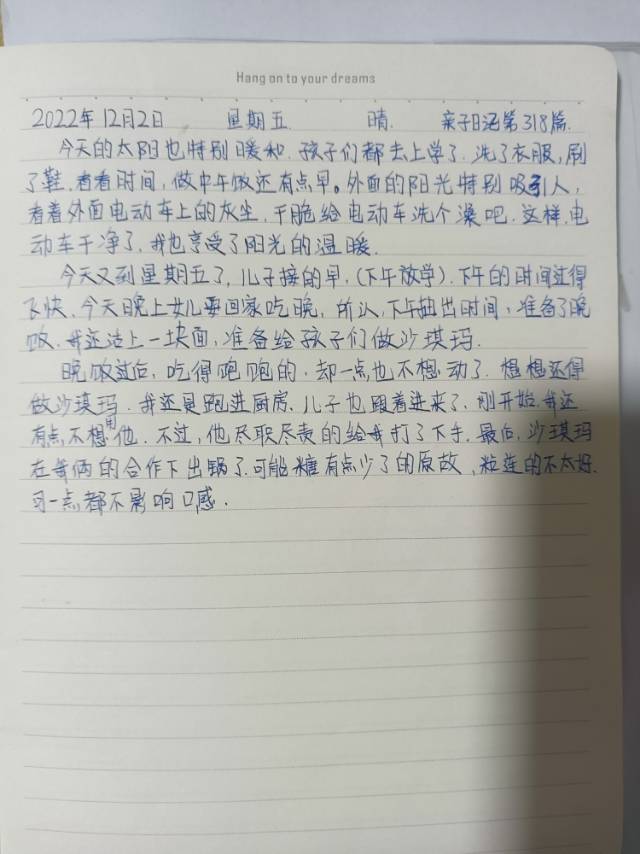 Hang on to your dreams
2022年12月2日 星期五 晴. 亲子日记第318篇.
今天的太阳也特别暖和.孩子们都去上学了.洗了衣服,刷
了鞋,看看时间,做中午饭还有点早。外面的阳光特别吸引人,
看着外面电动车上的灰尘,干脆给电动车洗个澡吧.这样,电
动车干净了,我也享受了阳光的温暖.
今天又到星期五了,儿子接的早,(下午放学).下午的时间过得
飞快.今天晚上女儿要回家吃晚,所以,下午抽出时间,准备了晚
饭.我还活上一块面,准备给孩子们做沙琪玛.
晚饭过后,吃得饱饱的.却一点也不想动了.想想还得
做沙琪玛.我还是跑进厨房.儿子也跟着进来了.刚开始,我还
有点不想用他.不过,他尽职尽责的给我打了下手.最后,沙琪玛
在我俩的合作下出锅了.可能糖有点少了的原故,粘连的不太好.
可一点都不影响口感.